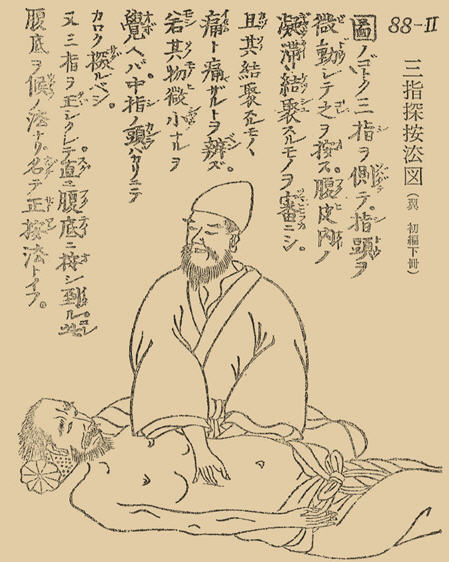 88-II
三指探按法図（翼 初編下冊）
圖ノゴトク三指ヲ側テ。指頭ヲ
微動シテ之ヲ按ス。腹皮内ノ
凝滞結聚スルモノヲ審ニシ。
且其結聚スルモノヽ
痛ト痛ザルトヲ辨ズ。
若其物微小ナルヲ
覺ヘバ中指ノ頭バカリニテ
カロク探ルベシ。
又三指ヲ正シクシテ直ニ腹底ニ按シ到ル。コレ
腹底ヲ候ノ法ナリ。名テ正按法トイフ。